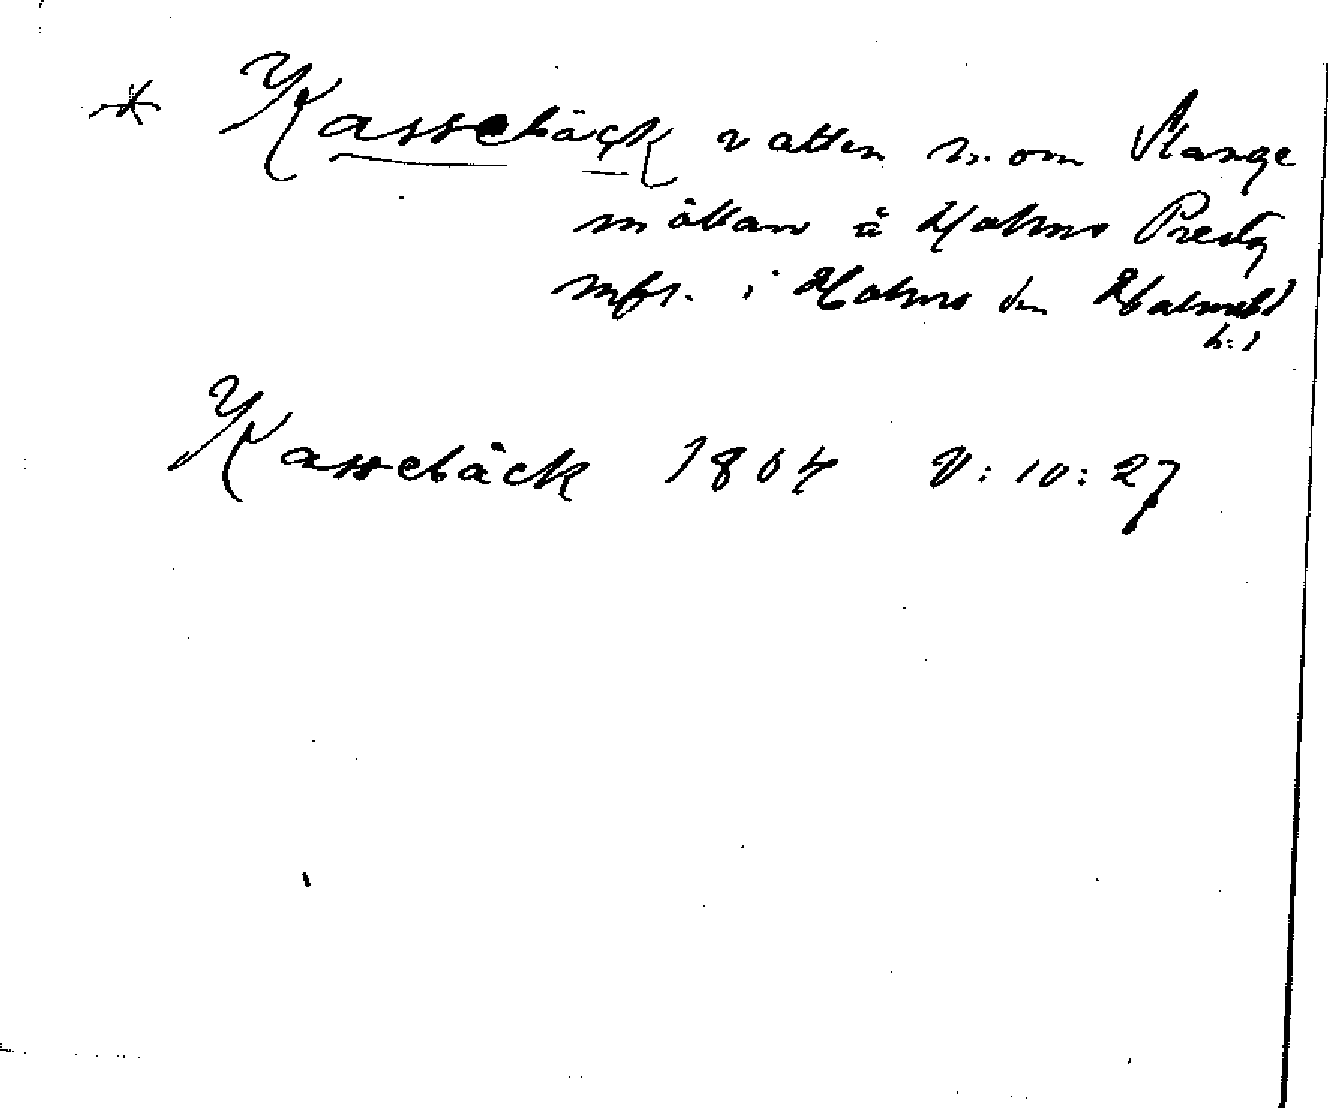 * Kassebäck vatten m. om Stange
möllan å Holms Prestg
mfl. i Holms sn Halmst
h:d
Kassebäck 1804 V: 10: 27